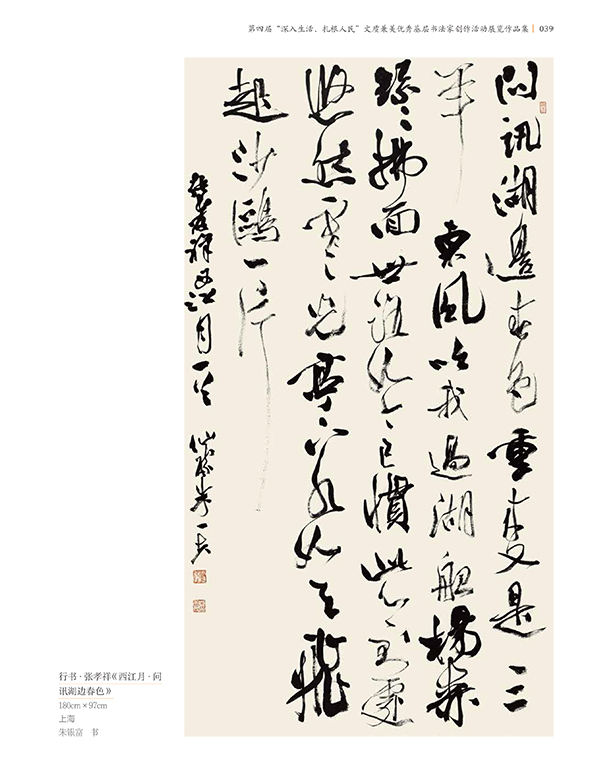 第四届“深入生活、扎根人民”文质兼美优秀基层书法家创作活动展览作品集 | 039
問訊湖邊春色重来又是三
年東風吹我過湖船楊柳
絲〻拂面世路如今已慣此心到處
悠然寒光亭下水如天飛
起沙鷗一片
張孝祥西江月一首
行书·张孝祥《西江月·问
讯湖边春色》
180cm×97cm
上海
朱银富 书